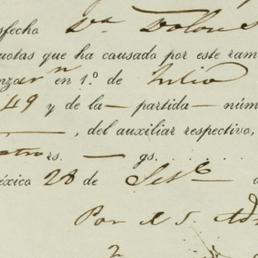 sfecho Da. Dolor
uotas que ha causado por este ram
nzar n en 1.º de Julio
49 y de la — partida — núm
, del auxiliar respectivo,
rs. — gs.
éxico 28 de Set.e d
Por A. S. Ad